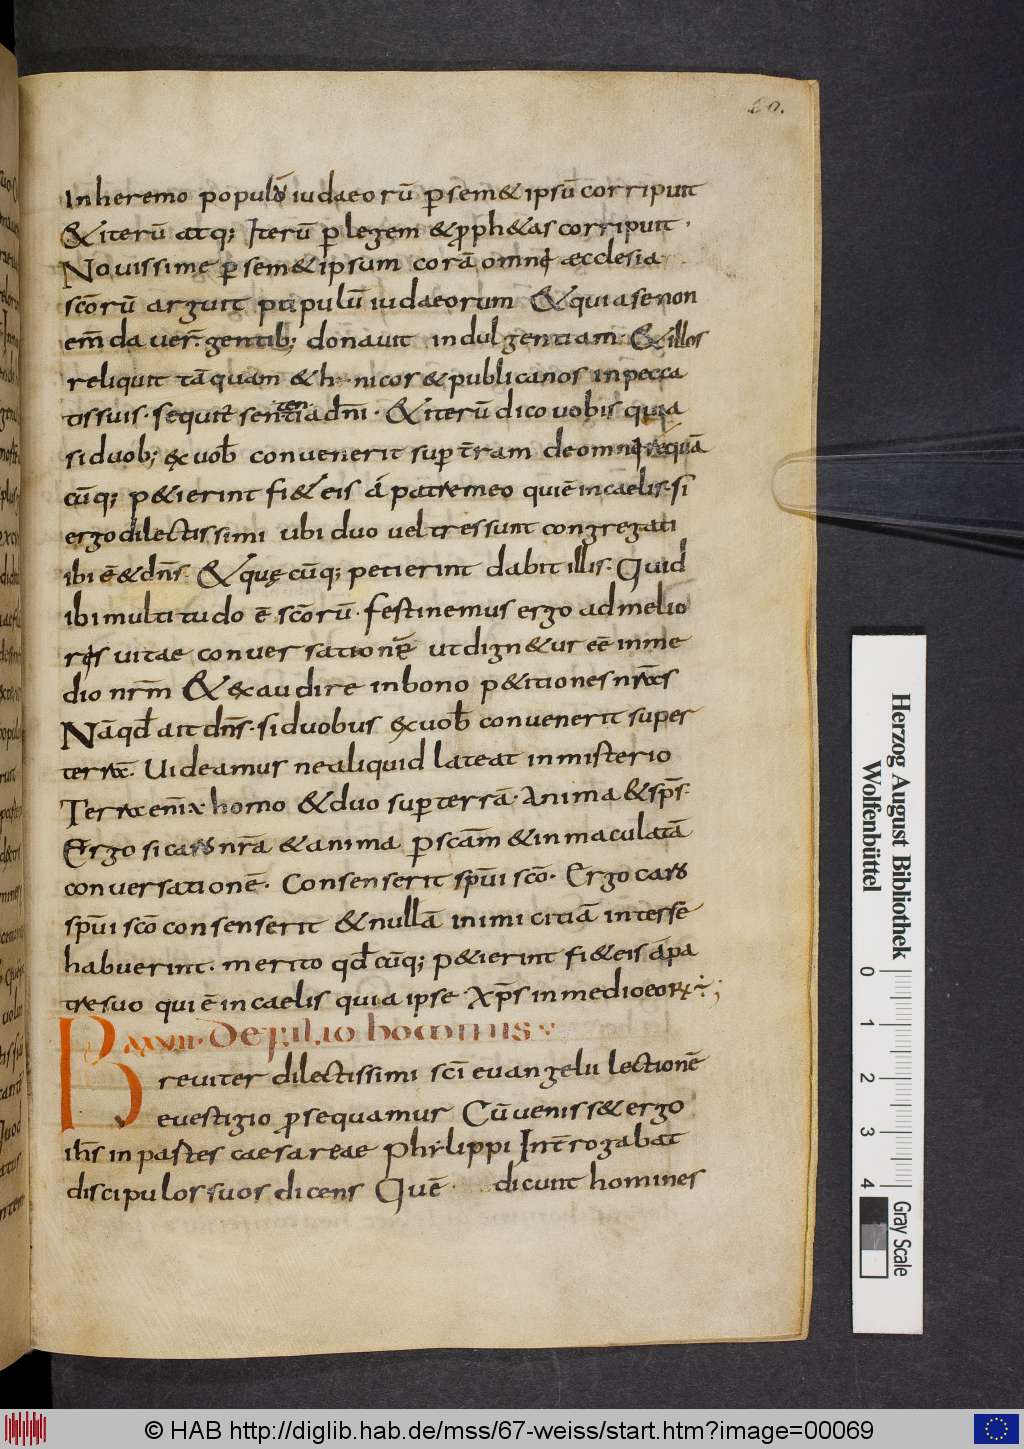 60.
In heremo populū iudaeorū ꝑ sem& ipsū corripuit
& iterū atq; Iterū ꝑ legem & ꝓph&as corripuit.
Novissime ꝑ sem& ipsum corā omni aecclesia
scōrū arguit populū iudaeorum & quia se non
em̄daver̄ gentib; donavit indulgentiam. & illos
reliquit tāquam & hnicos & publicanos in pecca
tis suis. sequit̄ sententia dn̄i. & iterū dico vobis quia
si duob; ex vob̄ convenerit suꝑ t̄ram de omni re quā
cūq; p&ierint fi& eis á patre meo qui ē in caelis. si
ergo dilectissimi ubi duo vel tres sunt congregati
ibi ē & dn̄s. & quę cūq; petierint dabit illis. Quid
ibi multitudo ē scōrū. festinemus ergo ad melio
res vitae conversationē ut dign&ur eē in me
dio nr̄m & exaudire in bono p&itiones nr̄as
Nā qđ ait dn̄s. si duobus ex vob̄ convenerit super
terrā. Videamus ne aliquid lateat in misterio
Terra enī homo & duo suꝑ terrā. Anima & sp̄s.
Ergo si caro nr̄a & anima ꝑ scām & inmaculatā
conversationē. Consenserit sp̄ui scō. Ergo caro
sp̄ui scō consenserit & nullā inimicitiā inter se
habuerint. merito qđ cūq; p&ierint fi& eis á pa
tre suo qui ē in caelis quia ipse xp̄s in medio eorꝝ
De filio hominis
Breviter dilectissimi scī evangelii lectionē
e vestigio ꝓsequamur Cū veniss& ergo
ih̄s in partes caesareae Philippi Int̄rogabat
discipulos suos dicens Quē dicunt homines
Herzog August Bibliothek
Wolfenbüttel
0 1 2 3 4
Gray Scale
© HAB http://diglib.hab.de/mss/67-weiss/start.htm?image=00069